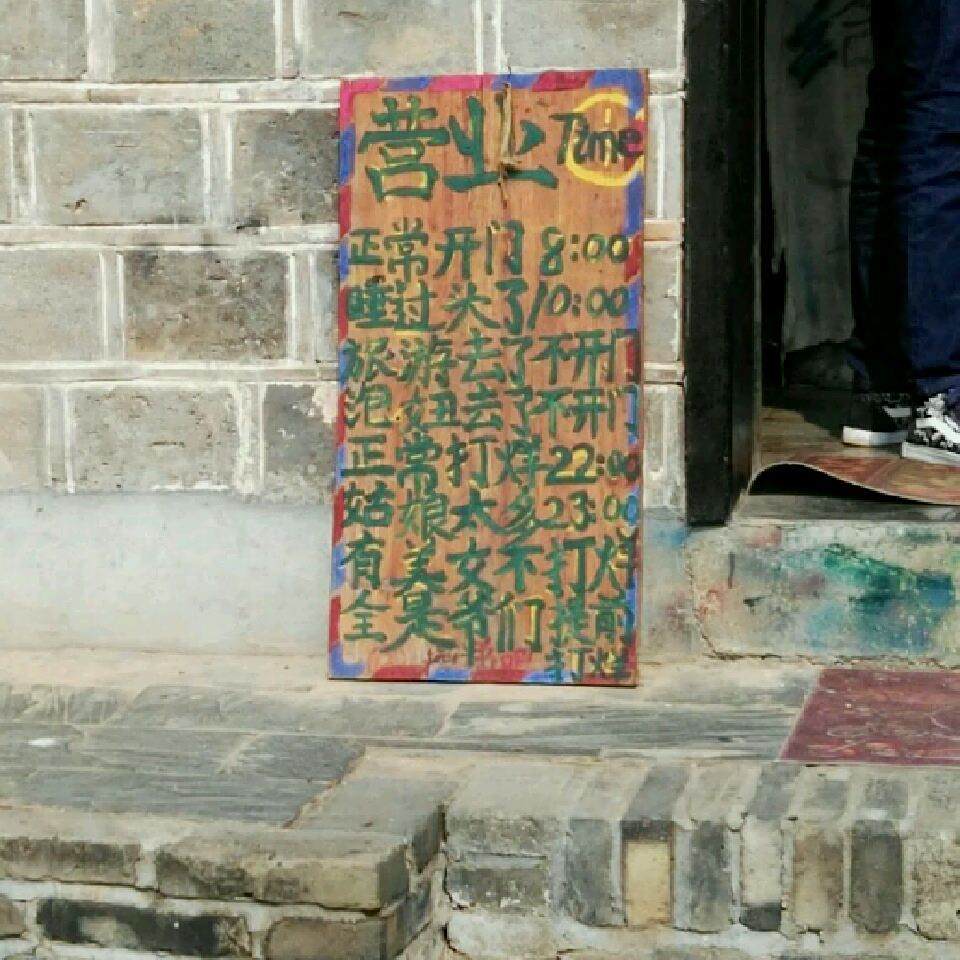 营业 Time
正常开门 8:00
睡过头了10:00
旅游去了不开门
泡妞去了不开门
正常打烊22:00
姑娘太多23:00
有美女不打烊
全是爷们提前
打烊